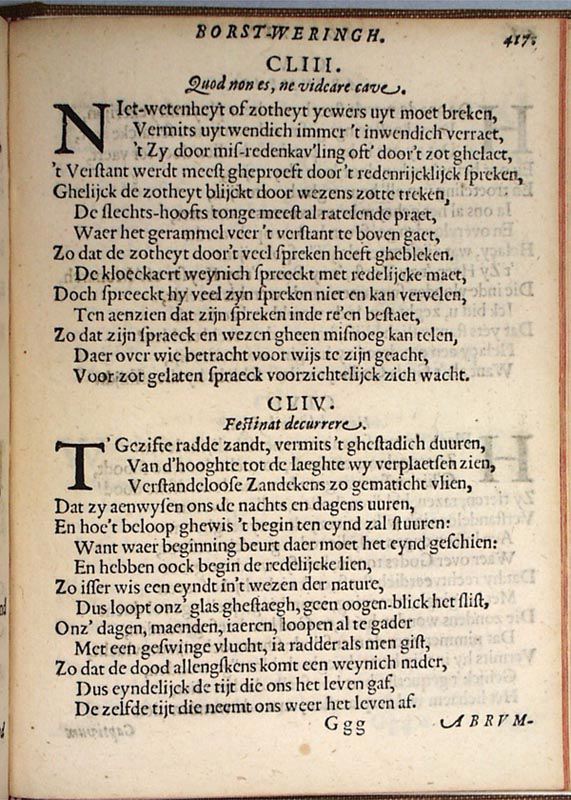 BORST-WERINGH. 417.
CLIII.
Quod non es, ne videare cave.
NIet-wetenheyt of zotheyt yewers uyt moet breken,
Vermits uytwendich immer 't inwendich verraet,
't Zy door mis-redenkav'ling oft' door't zot ghelaet,
't Verstant werdt meest gheproeft door 't redenrijcklijck spreken,
Ghelijck de zotheyt blijckt door wezens zotte treken,
De slechts-hoofts tonge meest al ratelende praet,
Waer het gerammel veer 't verstant te boven gaet,
Zo dat de zotheyt door't veel spreken heeft ghebleken.
De kloeckaert weynich spreeckt met redelijcke maet,
Doch spreeckt hy veel zyn spreken niet en kan vervelen,
Ten aenzien dat zijn spreken inde re'en bestaet,
Zo dat zijn spraeck en wezen gheen misnoeg kan telen,
Daer over wie betracht voor wijs te zijn geacht,
Voor zot gelaten spraeck voorzichtelijck zich wacht.
CLIV.
Festinat decurrere.
T' Gezifte radde zandt, vermits 't ghestadich duuren,
Van d'hooghte tot de laeghte wy verplaetsen zien,
Verstandeloose Zandekens zo gematicht vlien,
Dat zy aenwysen ons de nachts en dagens uuren,
En hoe't beloop ghewis 't begin ten eynd zal stuuren:
Want waer beginning beurt daer moet het eynd geschien:
En hebben oock begin de redelijcke lien,
Zo isser wis een eyndt in't wezen der nature,
Dus loopt onz' glas ghestaegh, geen oogen-blick het slist,
Onz' dagen, maenden, iaeren, loopen al te gader
Met een geswinge vlucht, ia radder als men gist,
Zo dat de dood allengskens komt een weynich nader,
Dus eyndelijck de tijt die ons het leven gaf,
De zelfde tijt die neemt ons weer het leven af.
Ggg ABRVM-